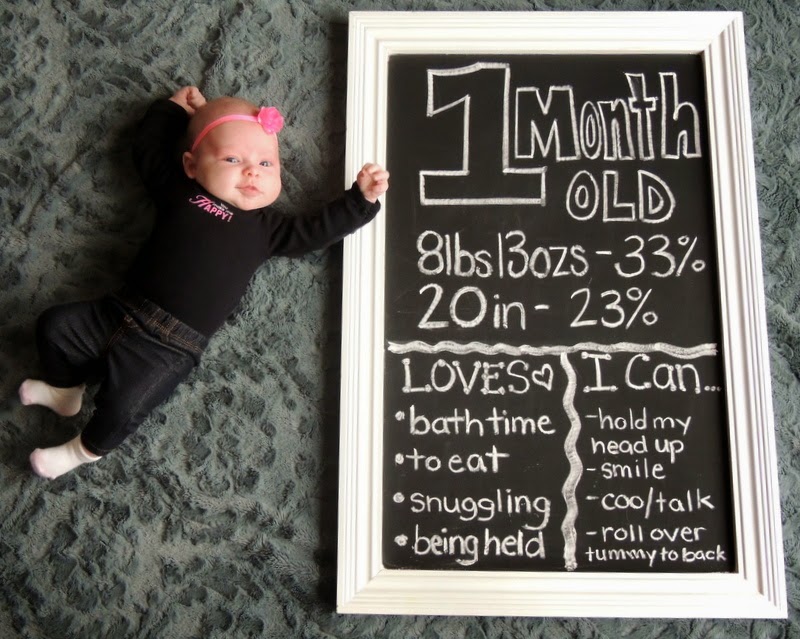 HAPPY!
1 Month
OLD
8lbs 13ozs - 33%
20 in - 23%
LOVES♡
• bath time
• to eat
• snuggling
• being held
I Can...
- hold my
head up
- smile
- coo/talk
- roll over
tummy to back